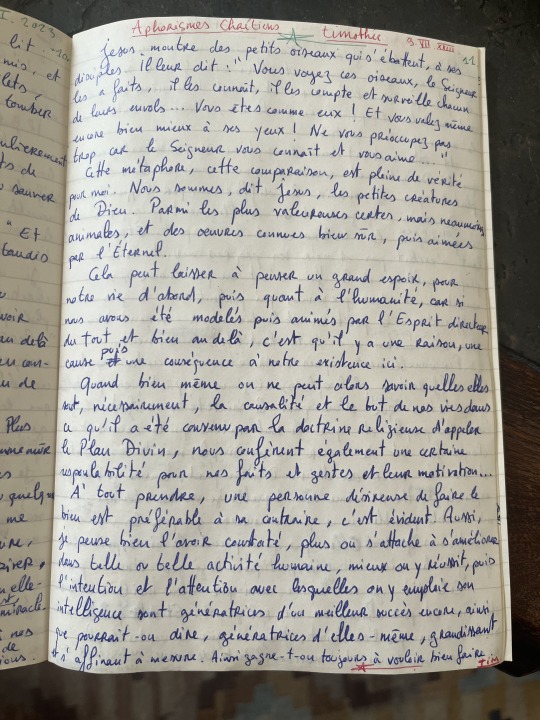 I. 2023
lit
mis, et
lets
tomber
ulièrement
ts de
sauver
" Et
taudis
voir
au delà
en con-
u de
Plus
quelque
me
aire,
elle-
miracle-
à nos
de
Aphorismes Chrétiens Timothée 9 VII XXIII
11
Jésus montre des petits oiseaux qui s'ébattent, à ses
disciples. Il leur dit : " Vous voyez ces oiseaux, le Seigneur
les a faits, il les connaît, il les compte et surveille chacun
de leurs envols... Vous êtes comme eux ! Et vous valez même
encore bien mieux à ses yeux ! Ne vous préoccupez pas
trop car le Seigneur vous connaît et vous aime.... "
Cette métaphore, cette comparaison, est pleine de vérité
pour moi. Nous sommes, dit Jésus, les petites créatures
de Dieu. Parmi les plus valeureuses certes, mais néanmoins
animales, et des oeuvres connues bien sûr, puis aimées
par l'Éternel.
Cela peut laisser à penser un grand espoir, pour
notre vie d'abord, puis quant à l'humanité, car si
nous avons été modelés puis animés par l'Esprit directeur
du tout et bien au delà, c'est qu'il y a une raison, une
cause puis une conséquence à notre existence ici.
Quand bien même on ne peut alors savoir quelles elles
sont, nécessairement, la causalité et le but de nos vies dans
ce qu'il a été convenu par la doctrine religieuse d'appeler
le Plan Divin, nous confèrent également une certaine
responsabilité pour nos faits et gestes et leur motivation...
A' tout prendre, une personne désireuse de faire le
bien est préférable à sa contraire, c'est évident. Aussi,
je pense bien l'avoir constaté, plus on s'attache à s'améliorer
dans telle ou telle activité humaine, mieux on y réussit, puis
l'intention et l'attention avec lesquelles on y emploie son
intelligence sont génératrices d'un meilleur succès encore, ainsi
que pourrait-on dire, génératrices d'elles-même, grandissant
et s'affinant à mesure. Ainsi gagne-t-on toujours à vouloir bien faire.
TiM